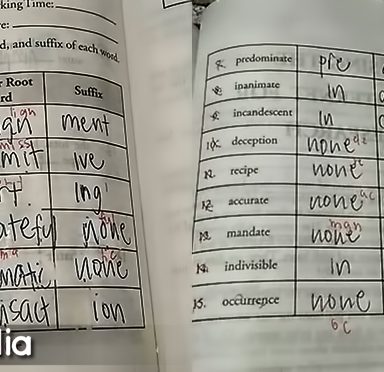 king Time:
e:
d, and suffix of each word.
r Root
rd
Suffix
lign
gn ment
miss
mit ive
ing
ateful none
ful
matic none
nsact ion
dia
predominate pre
inanimate in
incandescent in
10. deception none de
11. recipe none
12. accurate none ac
13. mandate none man
14. indivisible in
15. occurrence none
oc